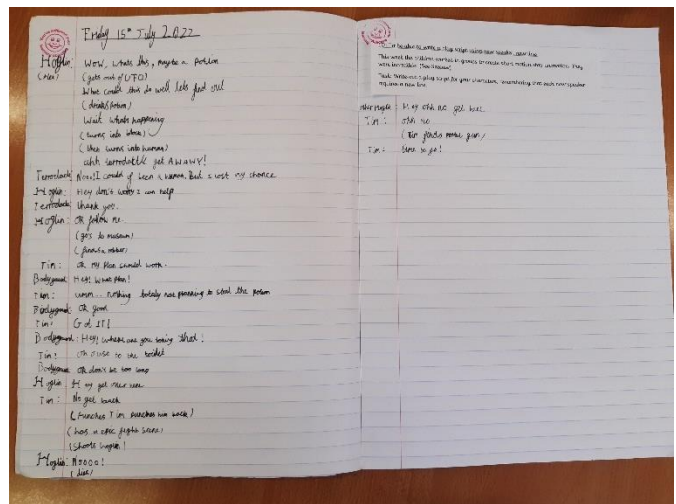 Friday 15th July 2022
Hoglin: Wow, whats this, maybe a potion
(Alex) (gets out of UFO)
What could this do well lets find out
(drinks potion)
Wait whats happening
(turns into block)
(then turns into human)
ahh terrodattle get AWAWY!
Terrodactle: Noo! I could of been a human. But I lost my chance
Hoglin: Hey don't worry I can help
Terrodactle: thank you.
Hoglin: Ok follow me.
(goes to museum)
(finds a robber)
Tim: ok my plan should work.
Bodyguard: Hey! What plan!
Tim: umm... nothing totally not planning to steal the potion
Bodyguard: Ok good
Tim: Got IT!
Bodyguard: Hey! where are you taking that!
Tim: oh just to the toilet
Bodyguard: Ok don't be too long
Hoglin: Hey get over here
Tim: No get back
(Punches Tim punches him back)
(has a epic fight scene)
(Shoots hoglin)
Hoglin: Noooo!
(dies)
to write a play script using new speaker, new line.
This week the children worked in groups to create short
They were incredible!
Task: To write a play script for your characters, remembering that each new speaker
requires a new line.
other Hoglin: Hey ohh no get here
Tim: ohh no
(Tim finds gun)
Tim: time to go!